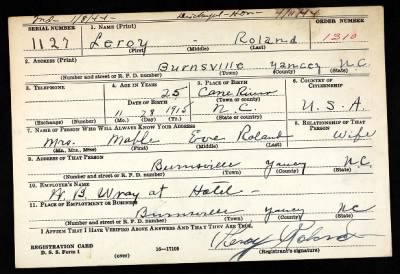 1/8/44 Discharged-Hon-
SERIAL NUMBER 1. NAME (Print) ORDER NUMBER
1127 Leroy - Roland 1310
(First) (Middle) (Last)
2. ADDRESS (Print)
Burnsville Yancey N.C.
(Number and street or R. F. D. number) (Town) (County) (State)
3. TELEPHONE 4. AGE IN YEARS 5. PLACE OF BIRTH 6. COUNTRY OF CITIZENSHIP
25 Cane River
DATE OF BIRTH (Town or county)
11 28 1915 N.C. U.S.A.
(Exchange) (Number) (Mo.) (Day) (Yr.) (State or country)
7. NAME OF PERSON WHO WILL ALWAYS KNOW YOUR ADDRESS 8. RELATIONSHIP OF THAT PERSON
Mrs. Eve Roland Wife
(Mr., Mrs., Miss) (First) (Middle) (Last)
9. ADDRESS OF THAT PERSON
Burnsville Yancey N.C.
(Number and street or R. F. D. number) (Town) (County) (State)
10. EMPLOYER'S NAME
B. Wray at Hotel -
11. PLACE OF EMPLOYMENT OR BUSINESS
Burnsville Yancey NC
(Number and street or R. F. D. number) (Town) (County) (State)
I AFFIRM THAT I HAVE VERIFIED ABOVE ANSWERS AND THAT THEY ARE TRUE.
REGISTRATION CARD Leroy Roland
D. S. S. Form 1 16—17105 (Registrant's signature)
(over)